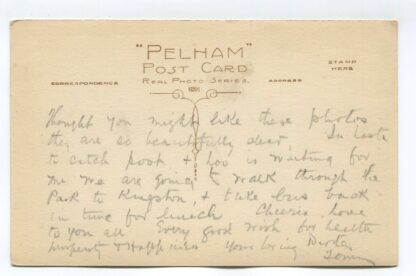 "PELHAM"
POST CARD
REAL PHOTO SERIES.
CORRESPONDENCE
ADDRESS
STAMP
HERE
Thought you might like these photos
they are so beautifully clear, In haste
to catch post, + is waiting for
me we are going to walk through the
Park to Kingston, + take bus back
in time for lunch Cheerio, love
to you all. Every good wish for health
+ Happiness Your loving